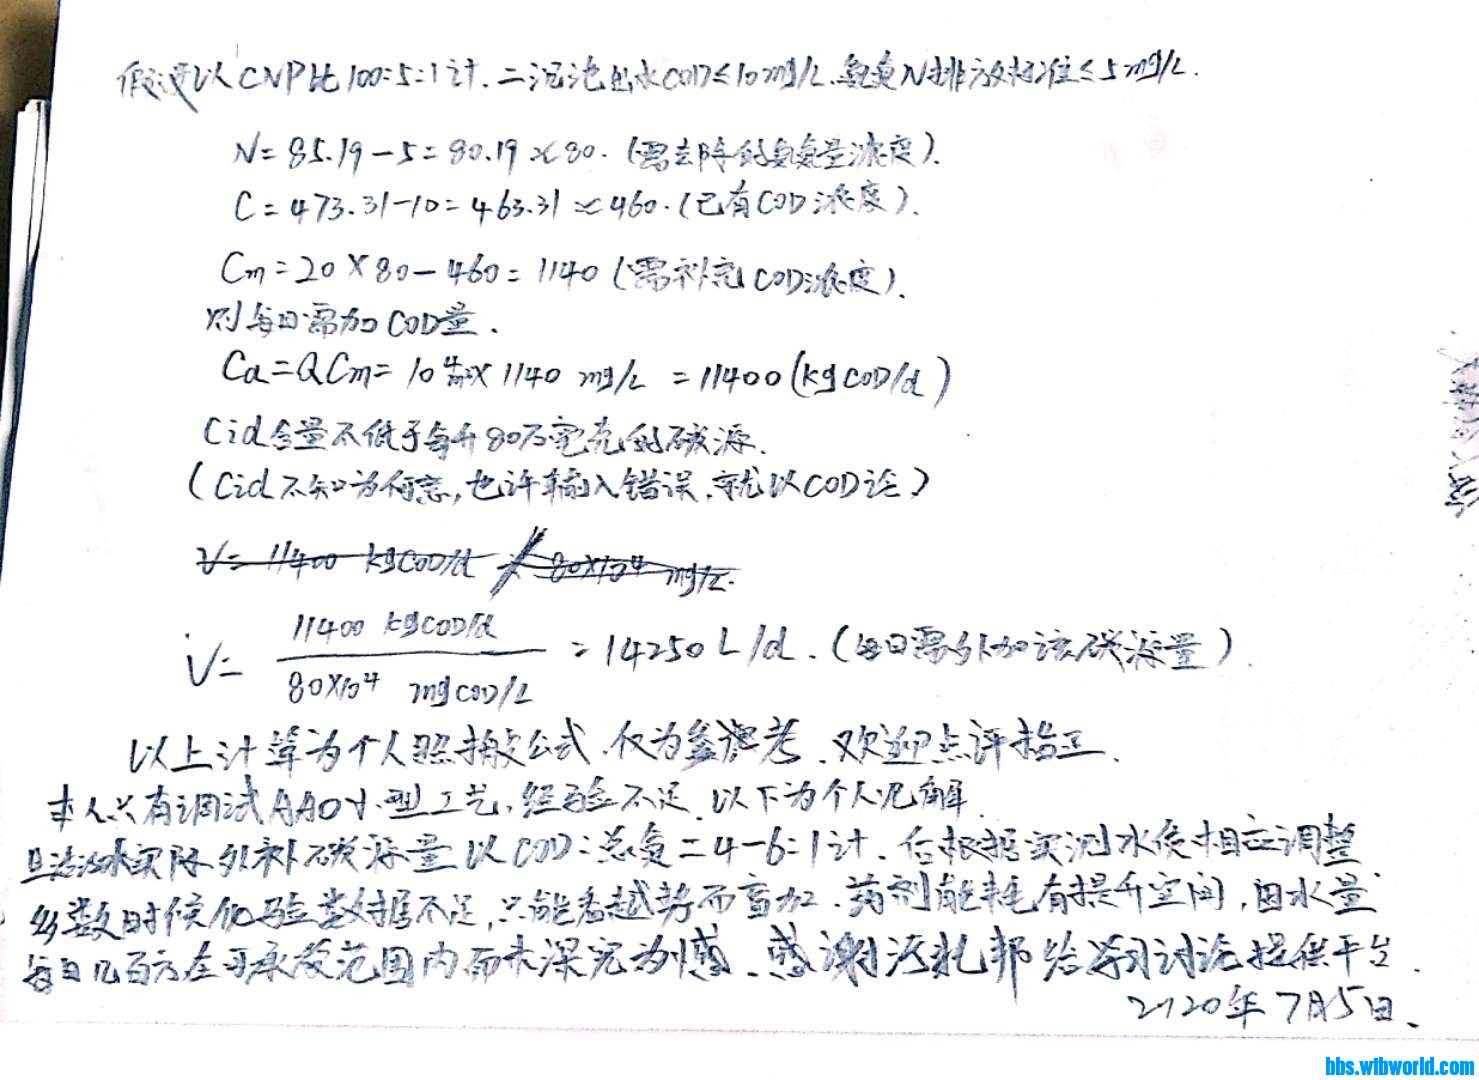 假设以CNP比100:5:1计.二沉池出水COD≤10mg/L.氨氮N排放标准≤5mg/L.
N=85.19-5=80.19≈80.(需去除的氨氮量浓度).
C=473.31-10=463.31≈460.(已有COD浓度).
Cm=20×80-460=1140(需补充COD浓度).
则每日需加COD量.
Ca=QCm=10⁴m³×1140 mg/L=11400(kgCOD/d)
Cid含量不低于每升80万毫克的碳源.
(Cid不知为何意,也许输入错误,就以COD论)
V=11400 kgCOD/d / 80×10⁴ mg/L.
V= 11400 kgCOD/d / 80×10⁴ mgCOD/L =14250L/d.(每日需外加该碳源量).
以上计算为个人照搬公式.仅为参考.欢迎点评指正.
本人只有调试AAO小型工艺,经验不足.以下为个人见解.
实际外补碳源量以COD:总氮=4-6:1计.后根据实测水质相应调整
多数时候化验数据不足,只能看趋势而盲加.药剂能耗有提升空间,因水量
每日几百方在可承受范围内而未深究为憾.感谢污托邦给学习讨论提供平台.
2020年7月5日.
bbs.wtbworld.com